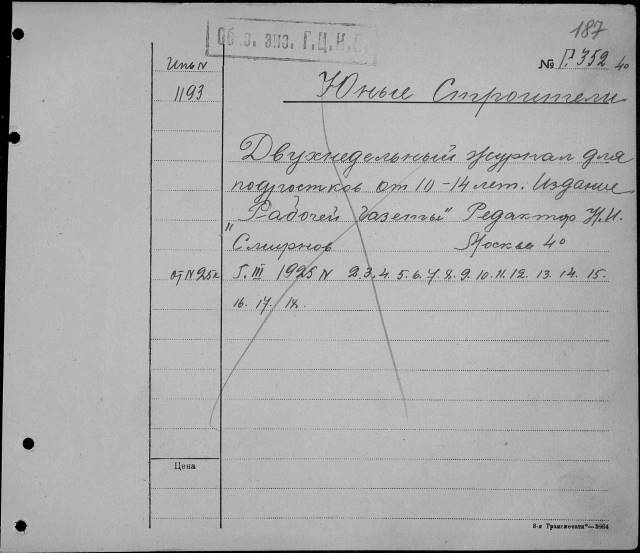 187
Об. экз. Г.Ц.К.П.
№ П 352 40
Инв N
1193
Юные Строители
Двухнедельный журнал для
подростков от 10-14 лет. Издание
"Рабочей газеты" Редактор Н.И.
Смирнов Москва 4º
I. III 1925 N 2. 3. 4. 5. 6. 7. 8. 9. 10. 11. 12. 13. 14. 15.
16. 17. 18.
Цена
8-я Транспечати"—3864